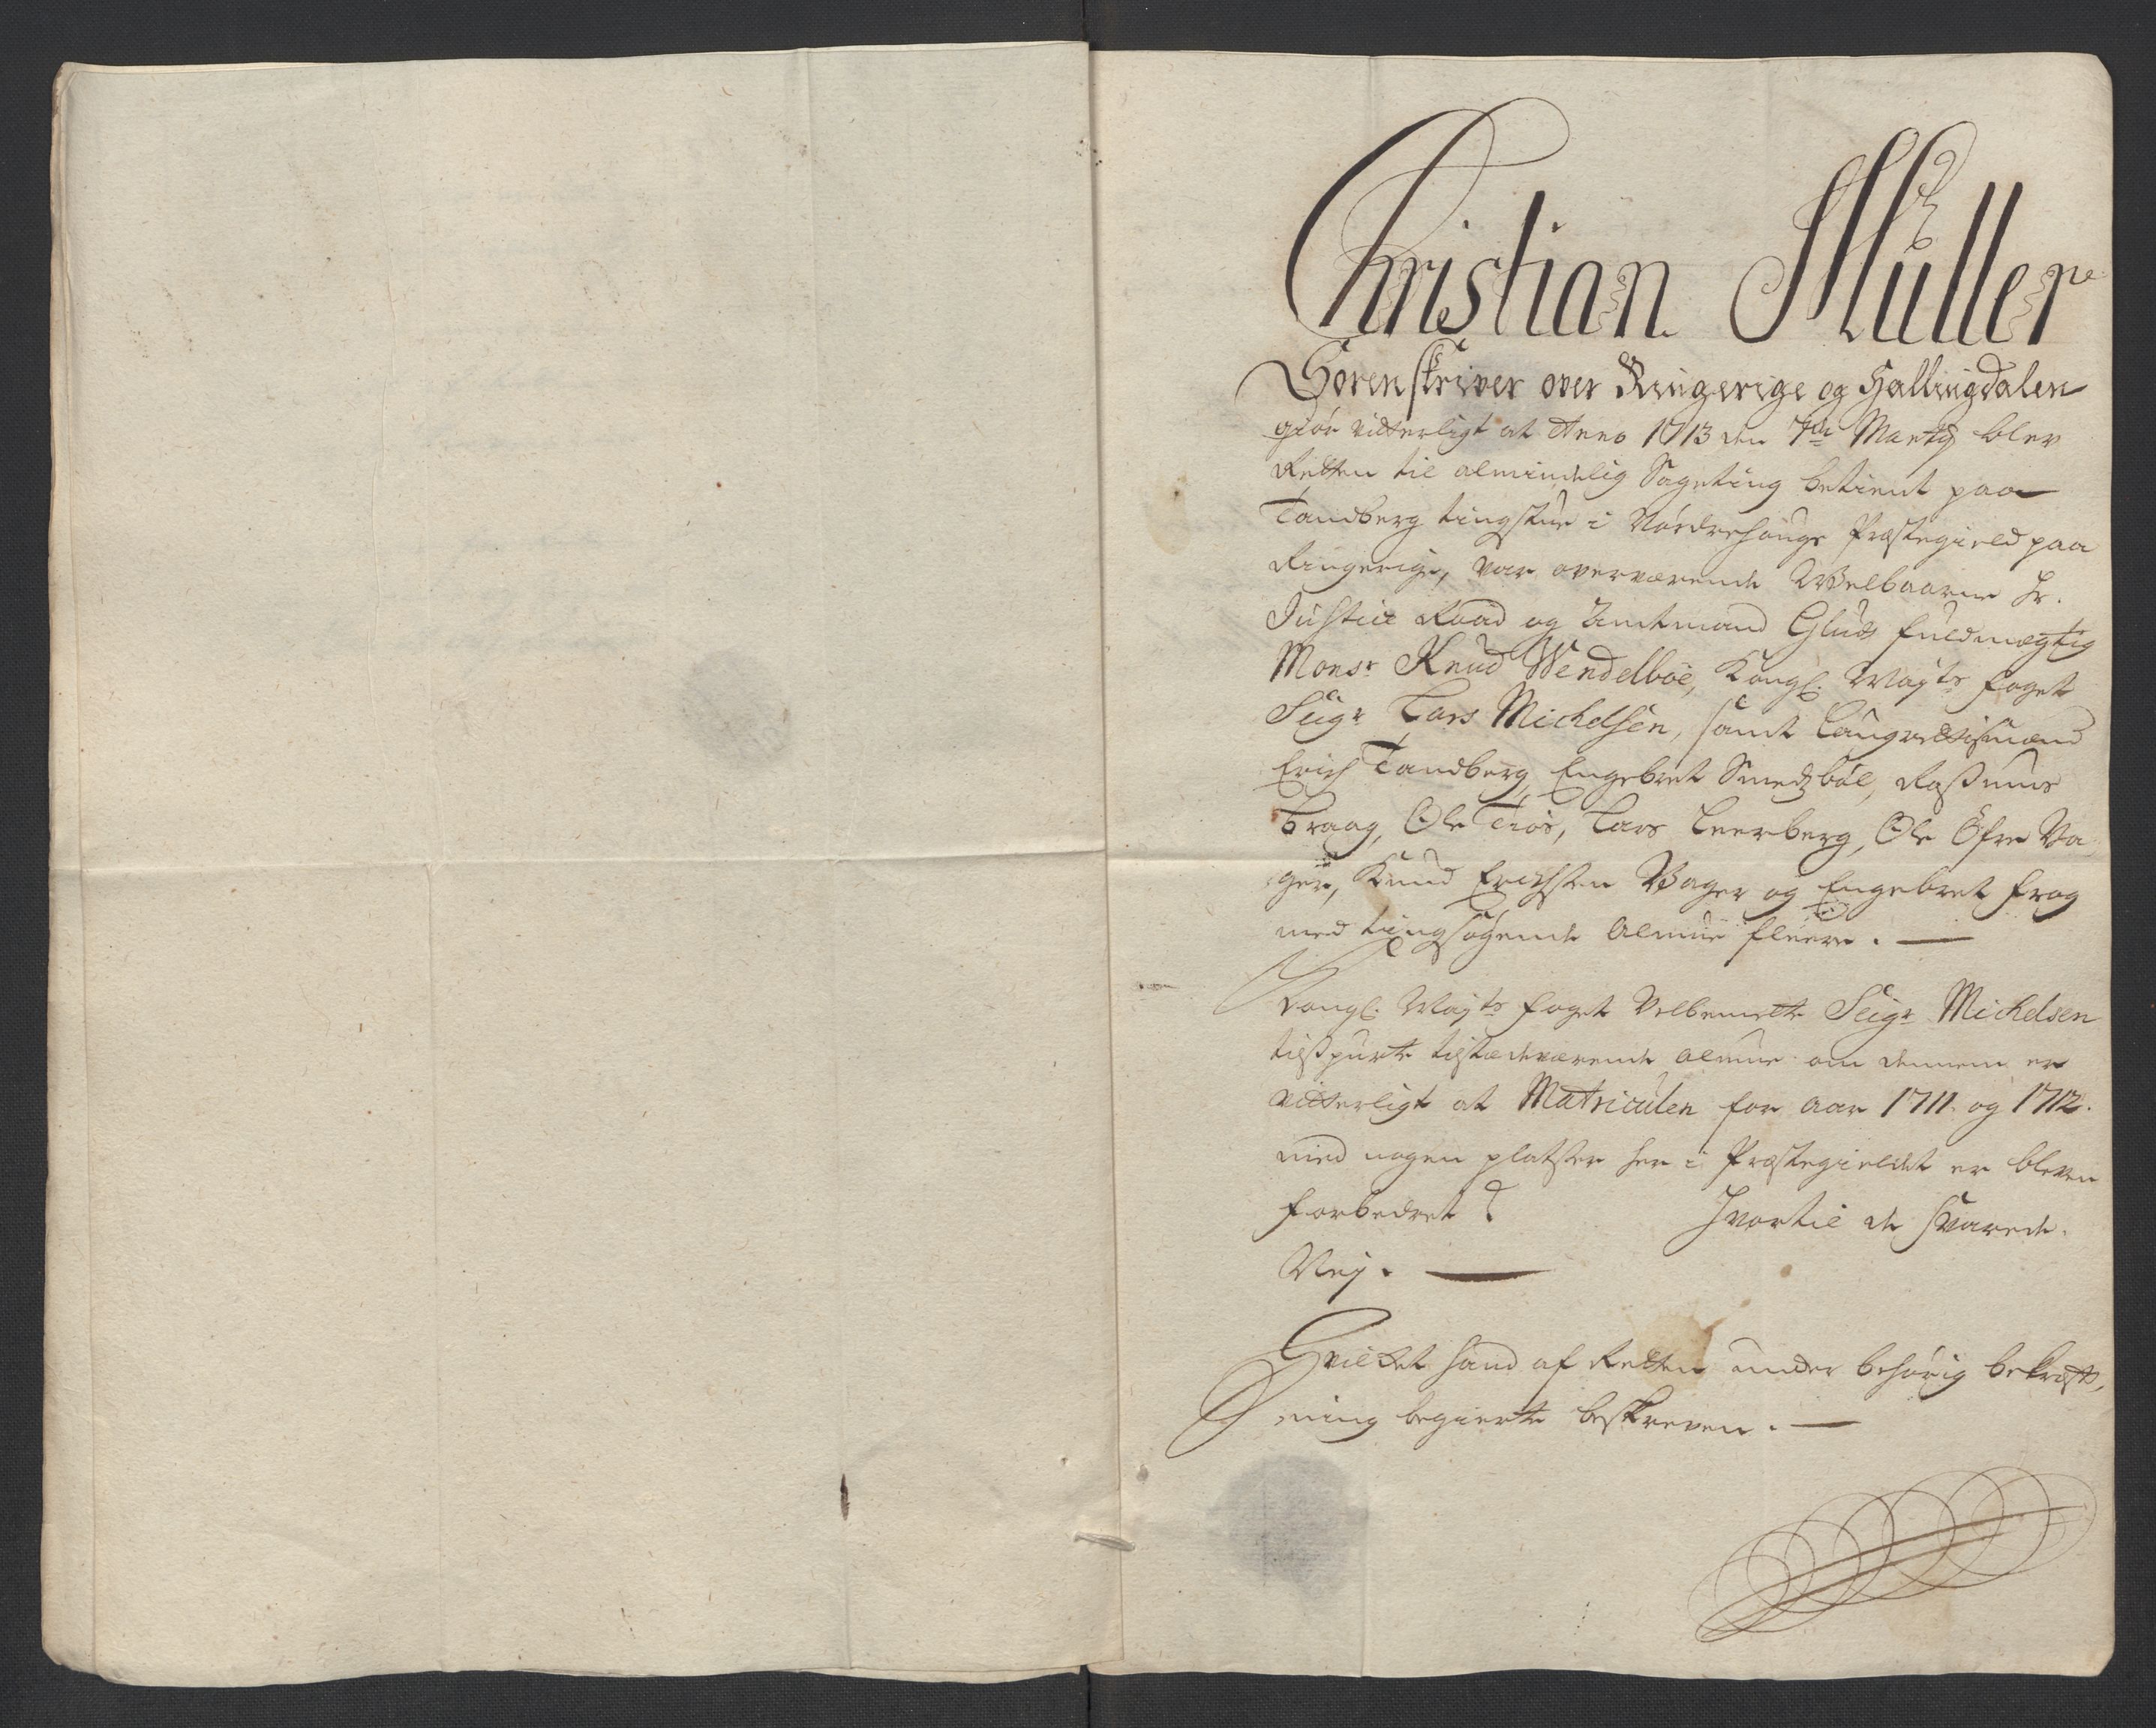 Christian Müller
Sorenskriver over Ringerige og Hallingdalen
giør vitterligt at Anno 1713 den 7de Marty blev
Retten til almindelig Sageting betient paa
Tandberg tingstue i Nordrehougs Præstegield paa
Ringerige, var overværende Welbaarne Hr.
Justice Raad og Amtmand Gluds fuldmægtig
Monsr Knud Wendelboe, Kongl. Mayts foget
Seigr Lars Michelsen, samt Laugrettismænd
Erich Tandberg, Engebret Smedzböl, Rassmus
Braag, Ole Tiös, Lars Leerberg, Ole Öfre Va,
ger, Knud Erichsen Wager og Engebret Frog
med tingsøgende Almue fleere. —
Kongl. Mayts foget Velbemelte Seigr Michelsen
tilspurte tilstædeværende almue om dennem er
vitterligt at Matriculen for aar 1711. og 1712.
med nogen platser her i Præstegieldet er bleven
forbedret? Hvortil de svarede.
Nej. —
Hvilket hand af Retten under behörig bekræft,
ning begierte beskreven. —